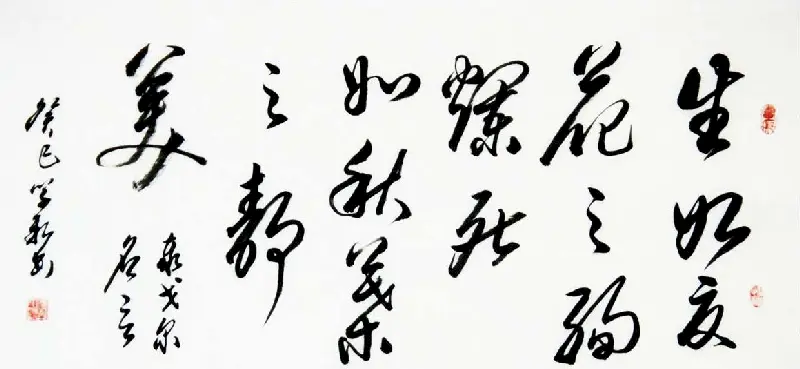 生如夏
花之绚
爛死
如秋葉
之静
美
泰戈尔
名言
癸巳